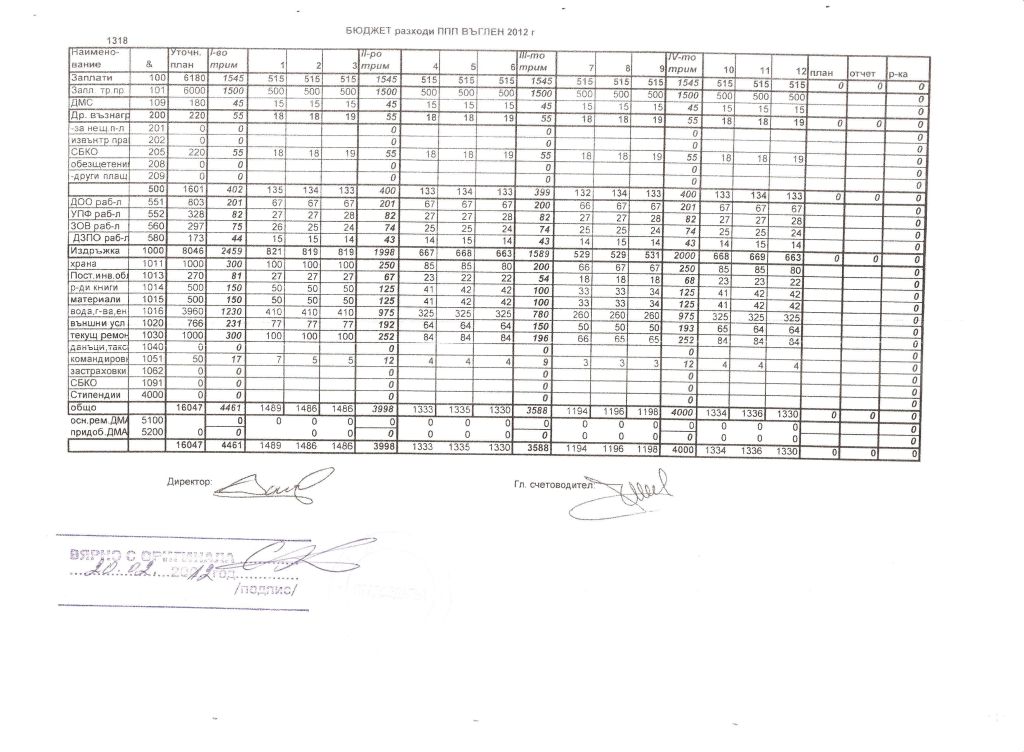 БЮДЖЕТ разходи ППП ВЪГЛЕН 2012 г
1318
Наимено- Уточн. I-во II-ро III-то IV-то
вание & план трим 1 2 3 трим 4 5 6 трим 7 8 9 трим 10 11 12 план отчет р-ка
Заплати 100 6180 1545 515 515 515 1545 515 515 515 1545 515 515 515 1545 515 515 515 0 0 0
Запл. тр.пр. 101 6000 1500 500 500 500 1500 500 500 500 1500 500 500 500 1500 500 500 500 0
ДМС 109 180 45 15 15 15 45 15 15 15 45 15 15 15 45 15 15 15 0
Др. възнагр 200 220 55 18 18 19 55 18 18 19 55 18 18 19 55 18 18 19 0 0 0
-за нещ.п-л 201 0 0 0 0 0 0
извънтр пра 202 0 0 0 0 0 0
СБКО 205 220 55 18 18 19 55 18 18 19 55 18 18 19 55 18 18 19 0
обезщетени 208 0 0 0 0 0 0
-други плащ 209 0 0 0 0 0 0
500 1601 402 135 134 133 400 133 134 133 399 132 134 133 400 133 134 133 0 0 0
ДОО раб-л 551 803 201 67 67 67 201 67 67 67 200 66 67 67 201 67 67 67 0
УПФ раб-л 552 328 82 27 27 28 82 27 27 28 82 27 27 28 82 27 27 28 0
ЗОВ раб-л 560 297 75 26 25 24 74 25 25 24 74 25 25 24 74 25 25 24 0
ДЗПО раб-л 580 173 44 15 15 14 43 14 15 14 43 14 15 14 43 14 15 14 0
Издръжка 1000 8046 2459 821 819 819 1998 667 668 663 1589 529 529 531 2000 668 669 663 0 0 0
храна 1011 1000 300 100 100 100 250 85 85 80 200 66 67 67 250 85 85 80 0
Пост.инв.обл 1013 270 81 27 27 27 67 23 22 22 54 18 18 18 68 23 23 22 0
р-ди книги 1014 500 150 50 50 50 125 41 42 42 100 33 33 34 125 41 42 42 0
материали 1015 500 150 50 50 50 125 41 42 42 100 33 33 34 125 41 42 42 0
вода,г-ва,ен 1016 3960 1230 410 410 410 975 325 325 325 780 260 260 260 975 325 325 325 0
външни усл 1020 766 231 77 77 77 192 64 64 64 150 50 50 50 193 65 64 64 0
текущ ремон 1030 1000 300 100 100 100 252 84 84 84 196 66 65 65 252 84 84 84 0
данъци,такс 1040 0 0 0 0 0 0
командировк 1051 50 17 7 5 5 12 4 4 4 9 3 3 3 12 4 4 4 0
застраховки 1062 0 0 0 0 0 0
СБКО 1091 0 0 0 0 0 0
Стипендии 4000 0 0 0 0 0 0
общо 16047 4461 1489 1486 1486 3998 1333 1335 1330 3588 1194 1196 1198 4000 1334 1336 1330 0 0 0
осн.рем.ДМА 5100 0 0 0 0 0 0 0 0 0 0 0 0 0 0 0 0 0
придоб.ДМА 5200 0 0 0 0 0 0 0 0 0 0 0 0 0 0 0 0 0
16047 4461 1489 1486 1486 3998 1333 1335 1330 3588 1194 1196 1198 4000 1334 1336 1330 0 0 0
Директор: Гл. счетоводител:
ВЯРНО С ОРИГИНАЛА
20.02. 2012 год.
/подпис/